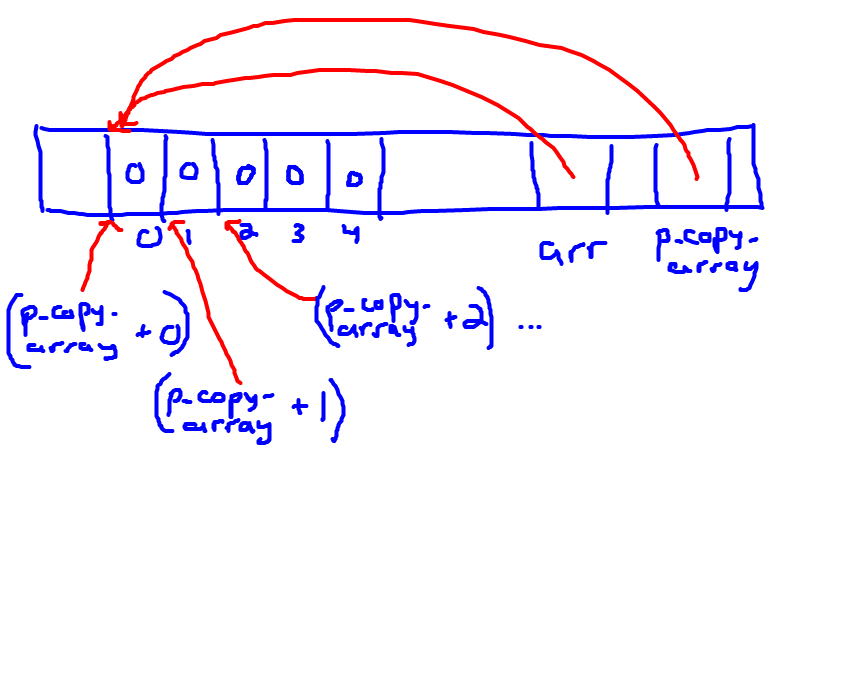 0 0 0 0 0
0 1 2 3 4
arr
p_copy-
array
(p_copy-
array + 0)
(p_copy-
array + 2) ...
(p_copy-
array + 1)